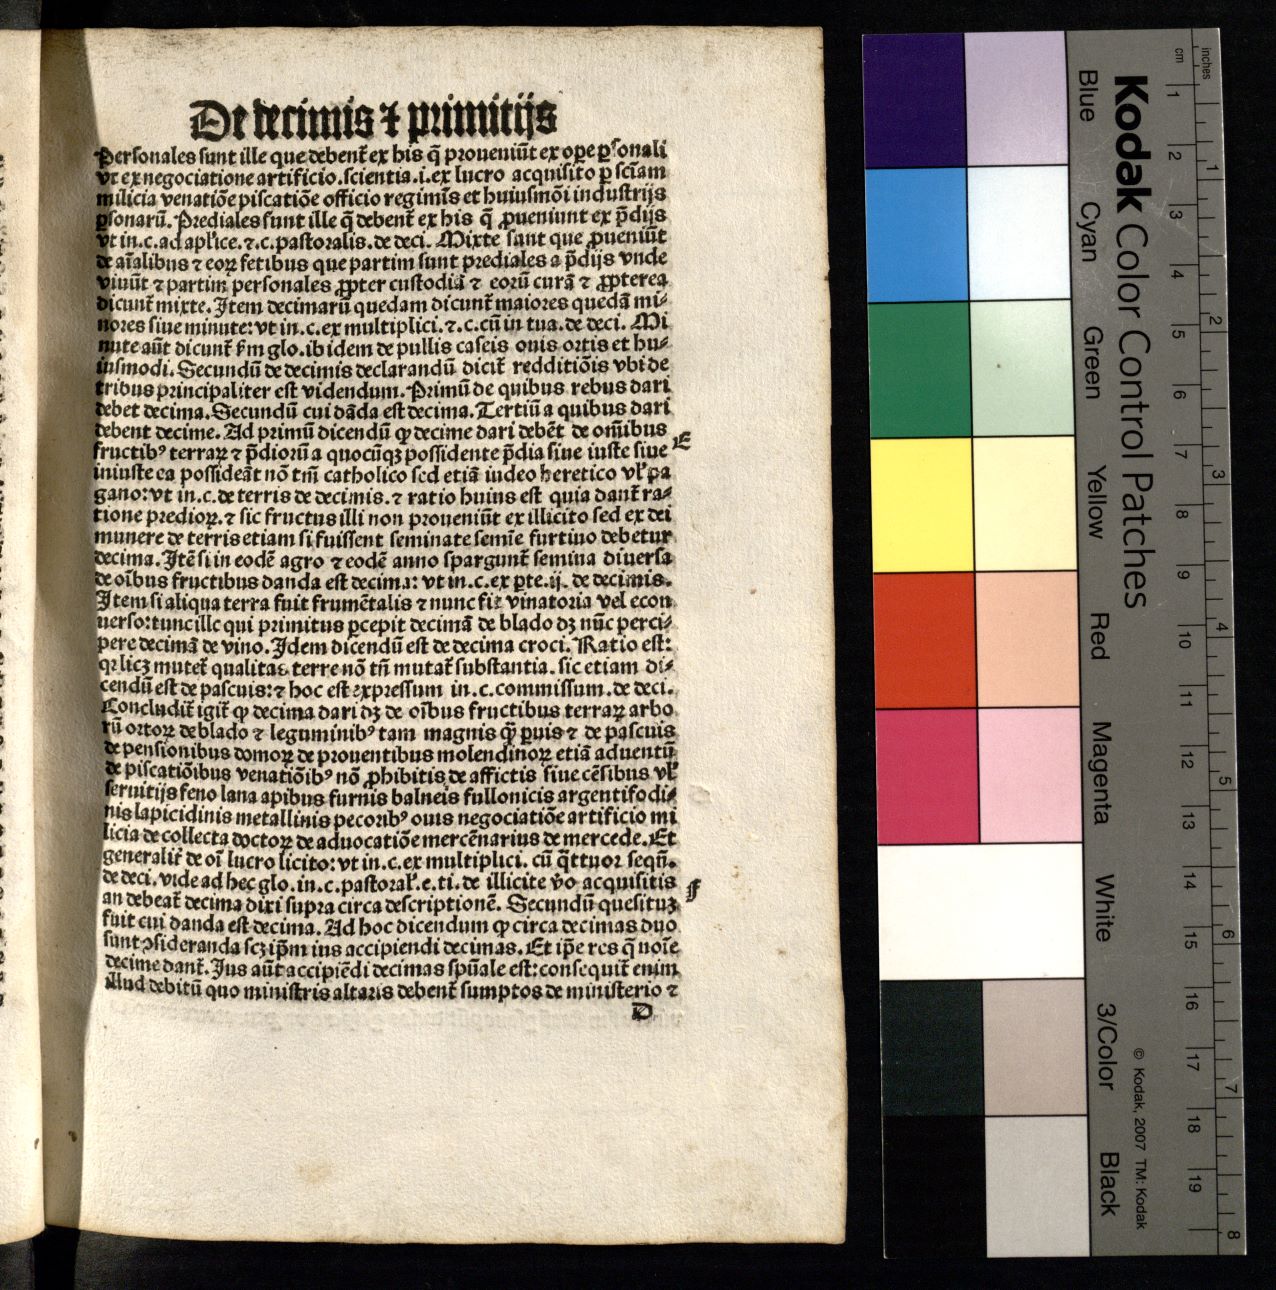 De decimis ⁊ primitijs
Personales sunt ille que debent̄ ex his q̄ proueniūt ex oꝑe ꝑsonali
vt ex negociatione artificio.scientia.i.ex lucro acquisito ꝑ sciam
milicia venatiōe piscatiōe officio regimīs et huiusmōi industrijs
ꝑsonarū.Prediales sunt ille q̄ debent̄ ex his q̄ ꝓueniunt ex p̄dijs
vt in.c.ad apl'ice.⁊.c.pastoralis.de deci. Mixte sunt que ꝓueniūt
de aīalibus ⁊ eoꝝ fetibus que partim sunt prediales a p̄dijs vnde
viuūt ⁊ partim personales ꝓpter custodiā ⁊ eorū curā ⁊ ꝓpterea
dicunt̄ mixte.Item decimarū quedam dicunt̄ maiores quedā mi⸗
nores siue minute:vt in.c.ex multiplici.⁊.c.cū in tua.de deci. Mi
nute aūt dicunt̄ ẜm glo.ibidem de pullis caseis ouis ortis et hu⸗
iusmodi.Secundū de decimis declarandū dicit̄ redditiōis vbi de
tribus principaliter est videndum.Primū de quibus rebus dari
debet decima.Secundū cui dāda est decima.Tertiū a quibus dari
debent decime.Ad primū dicendū ꝙ decime dari debēt de om̄ibus
E
fructibꝰ terraꝝ ⁊ p̄dioꝝ a quocūqꝫ possidente p̄dia siue iuste siue
iniuste ea possideāt nō tm̄ catholico sed etiā iudeo heretico vl' pa
gano:vt in.c.de terris de decimis.⁊ ratio huius est quia dant̄ ra⸗
tione predioꝝ.⁊ sic fructus illi non proueniūt ex illicito sed ex dei
munere de terris etiam si fuissent seminate semīe furtiuo debetur
decima.Itē si in eodē agro ⁊ eodē anno spargunt̄ semina diuersa
de oībus fructibus danda est decima: vt in.c.ex ꝑte.ij. de decimis.
Item si aliqua terra fuit frumētalis ⁊ nunc fit vinatoria vel econ
uerso:tunc ille qui primitus ꝑcepit decimā de blado dꝫ nūc perci⸗
pere decimā de vino.Idem dicendū est de decima croci.Ratio est:
qꝛ licꝫ mutet̄ qualitas terre nō tn̄ mutat̄ substantia.sic etiam di⸗
cendū est de pascuis:⁊ hoc est expressum in.c.commissum.de deci.
Concludit̄ igit̄ ꝙ decima dari dꝫ de oībus fructibus terraꝝ arbo
rū ortoꝝ de blado ⁊ leguminibꝰ tam magnis qꝫ̄ ꝑuis ⁊ de pascuis
de pensionibus domoꝝ de prouentibus molendinoꝝ etiā aduentū
de piscatiōibus venatiōibꝰ nō ꝓhibitis de affictis siue cēsibus vl'
seruitijs feno lana apibus furnis balneis fullonicis argentifodi⸗
nis lapicidinis metallinis pecoribꝰ ouis negociatiōe artificio mi
licia de collecta doctoꝝ de aduocatiōe mercēnarius de mercede.Et
generalit̄ de oī lucro licito:vt in.c.ex multiplici. cū q̄ttuor seqū.
de deci.vide ad hec glo.in.c.pastoral'.e.ti.de illicite v̄o acquisitis
f
an debeat̄ decima dixi supra circa descriptionē. Secundū quesituꝫ
fuit cui danda est decima.Ad hoc dicendum ꝙ circa decimas duo
sunt ꝯsideranda scꝫ ip̄m ius accipiendi decimas.Et ip̄e res q̄ noīe
decime dant̄.Ius aūt accipiēdi decimas spūale est:consequit̄ enim
illud debitū quo ministris altaris debent̄ sumptos de ministerio ⁊
D
Kodak Color Control Patches
Blue
Cyan
Green
Yellow
Red
Magenta
White
3/Color
Black
© Kodak, 2007 TM: Kodak
inches
cm
1
2
3
4
5
6
7
8
9
10
11
12
13
14
15
16
17
18
19
1
2
3
4
5
6
7
8